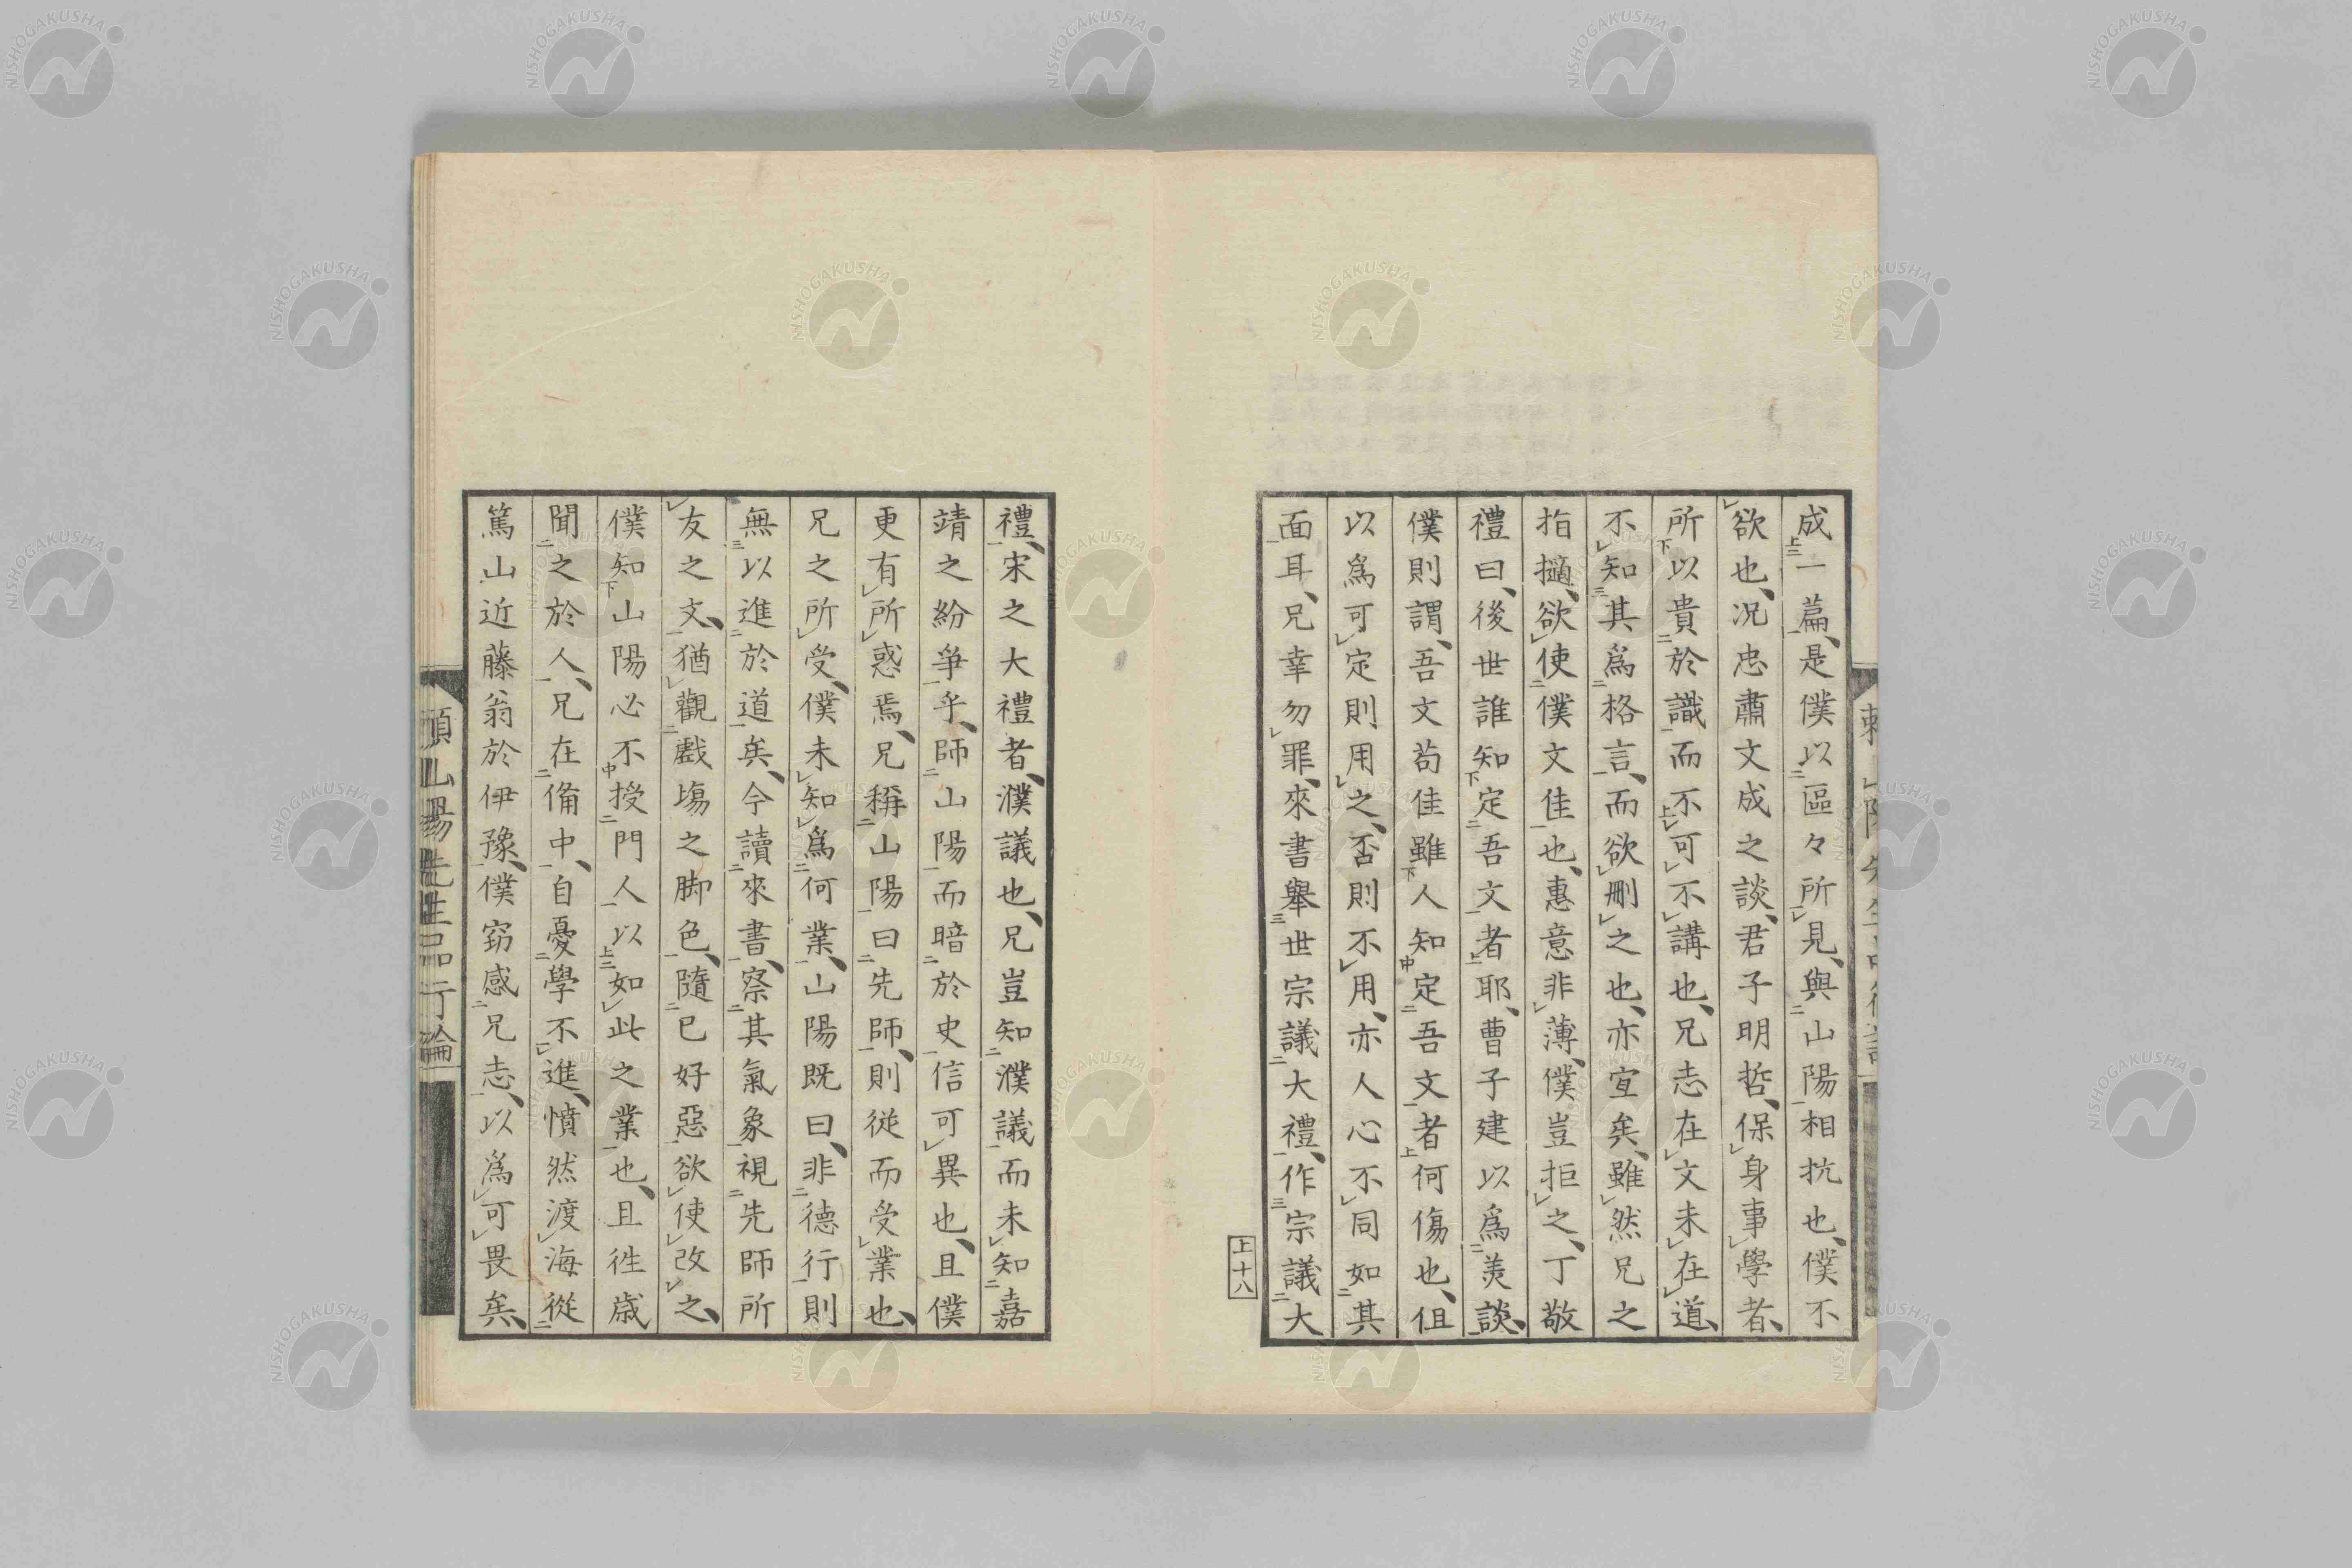 成一篇、是僕以區々所見、與山陽相抗也、僕不
欲也、況忠肅文成之談、君子明哲、保身事、學者、
所以貴於識而不可不講也、兄志在文未在道、
不知其爲格言、而欲刪之也、亦宜矣、雖然兄之
指擿、欲使僕文佳也、惠意非薄、僕豈拒之、丁敬
禮曰、後世誰知定吾文者耶、曹子建以爲羙談、
僕則謂、吾文苟佳雖人知定吾文者何傷也、但
以爲可定則用之、否則不用、亦人心不同如其
面耳、兄幸勿罪、來書舉世宗議大禮、作宗議大
上十八
禮、宋之大禮者、濮議也、兄豈知濮議而未知嘉
靖之紛爭乎、師山陽而暗於史信可異也、且僕
更有所惑焉、兄稱山陽曰先師、則從而受業也、
兄之所受、僕未知爲何業、山陽既曰、非德行則
無以進於道矣、今讀來書、察其氣象視先師所
友之文、猶觀戲場之脚色、隨已好惡欲使改之、
僕知山陽必不授門人以如此之業也、且徃歳
聞之於人、兄在備中、自憂學不進、憤然渡海從
篤山近藤翁於伊豫、僕窃感兄志、以爲可畏矣、
頼山陽先生品行論